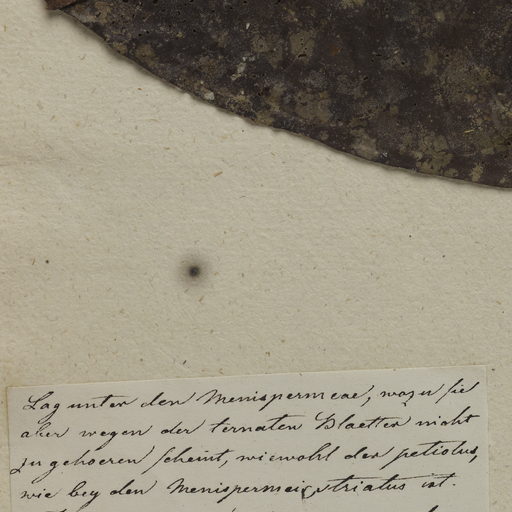 Lag unter den Menispermeae, wozu sie
aber wegen der ternaten Blaetter nicht
zu gehoeren scheint, wiewohl der petiolus,
wie bey den Menispermeis striatus ist.